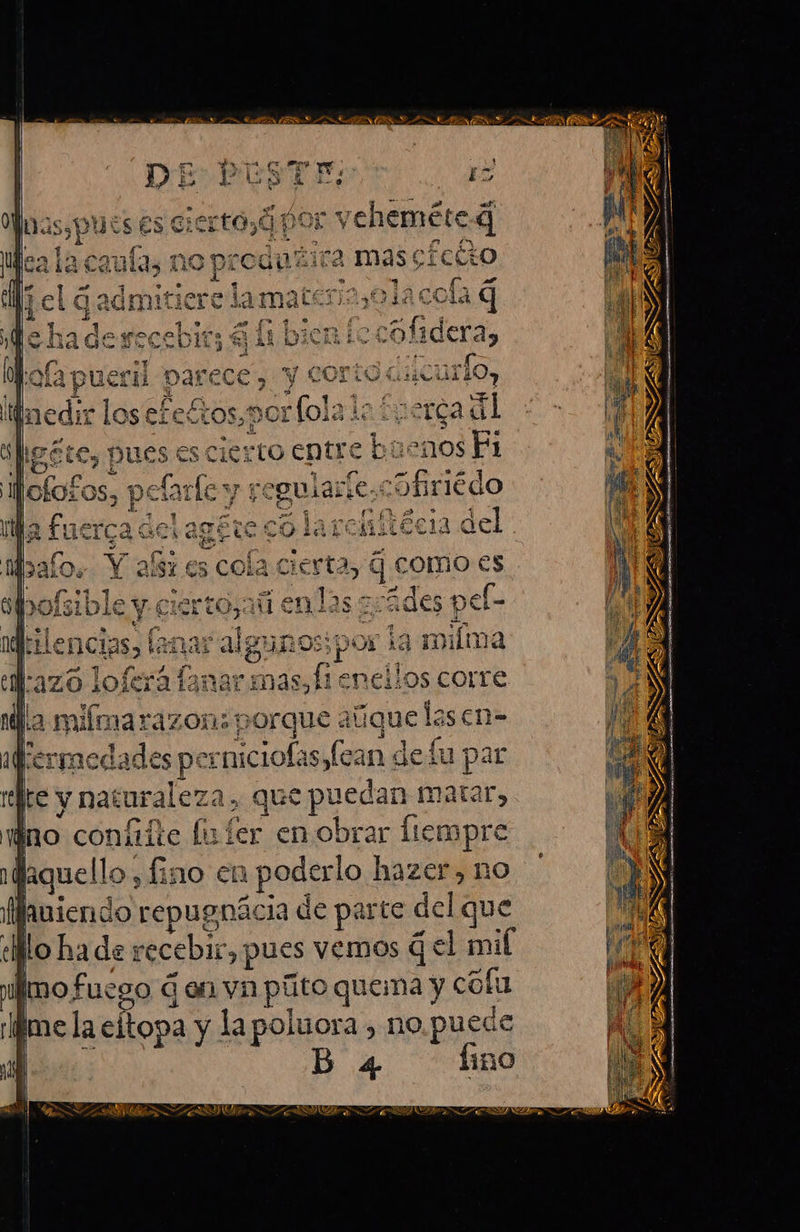 DE PESTE, 12
nas, pues es cierto, q̃ por vehemẽte q̃
sea la causa, no produzira mas efecto
el q̃ admitiere la materia, o la cosa q̃
ha de recebir; q̃ si bien se cõsidera,
cosa pueril parece, y corto discurso,
medir los efectos, por sola la fuerça dl
agẽte, pues es cierto entre buenos Fi
losofos, pesarse y regularse, cõfiriẽdo
la fuerça del agẽte cõ la resistẽcia del
paso. Y assi es cosa cierta, q̃ como es
possible y cierto, aũ en las grãdes pes-
tilencias, sanar algunos; por la misma
razõ lo serà sanar mas, si en ellos corre
la misma razon: porque aũque las en-
fermedades perniciosas, sean de su par
te y naturaleza, que puedan matar,
no consiste su ser en obrar siempre
aquello, sino en poderlo hazer, no
auiendo repugnãcia de parte del que
lo ha de recebir, pues vemos q̃ el mis
mo fuego q̃ en vn pũto quema y cõsu
me la estopa y la poluora, no puede
B 4 sino